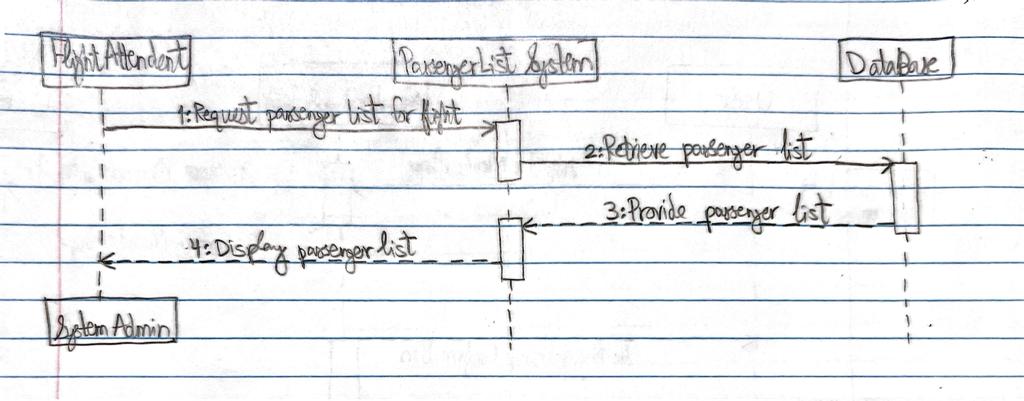 FlightAttendent
PassengerList System
DataBase
1:Request passenger list for flight
2:Retrieve passenger list
3:Provide passenger list
4:Display passenger list
SystemAdmin